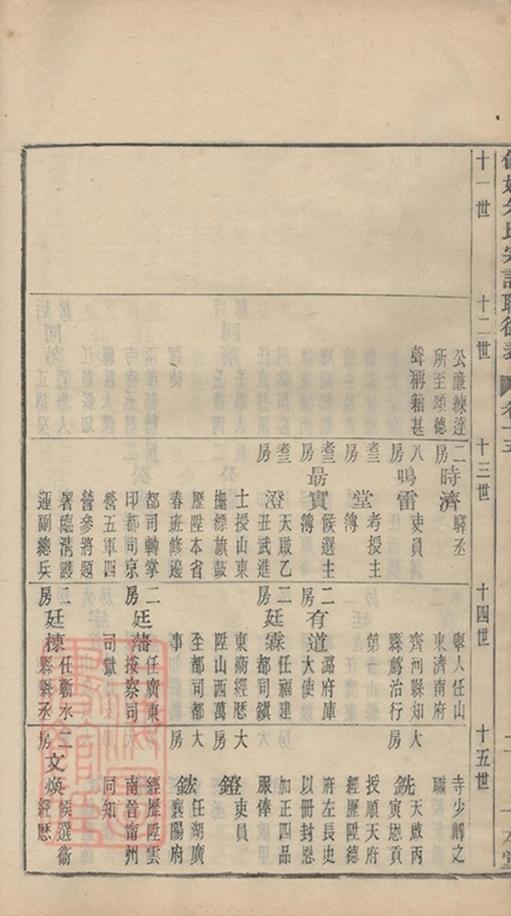 十一世
十二世
十三世
十四世
十五世
公廉練達
所至頌德
聲稱籍甚
二房 時濟 驛丞
八房 鳴雷 吏員
耆房 堂 考授主
簿
耆房 最實 候選主
簿
耆房 澄 天啟乙
丑武進
士授山東
撫標旗鼓
歷陞本省
春班修邊
都司轉掌
印都司京
營五軍四
營參將題
署臨清護
運副總兵
舉人任山
東濟南府
齊河縣知
縣薦治行
第一
二房 有道 潞府庫
大使
二房 廷霖 任福建
都司鎮
東衞經歷
陞山西萬
全都司都
事
二房 廷藩 任廣東
按察司
司獄
二房 廷棟 任蘄水
縣縣丞
寺少卿之
職
大房 銑 天啟丙
寅恩貢
授順天府
經歷陞德
府左長史
以冊封恩
加正四品
服俸
大房 鐙 吏員
大房 鋐 任湖廣
襄陽府
經歷陞雲
南晉甯州
同知
二房 文煥 候選衞
經歷